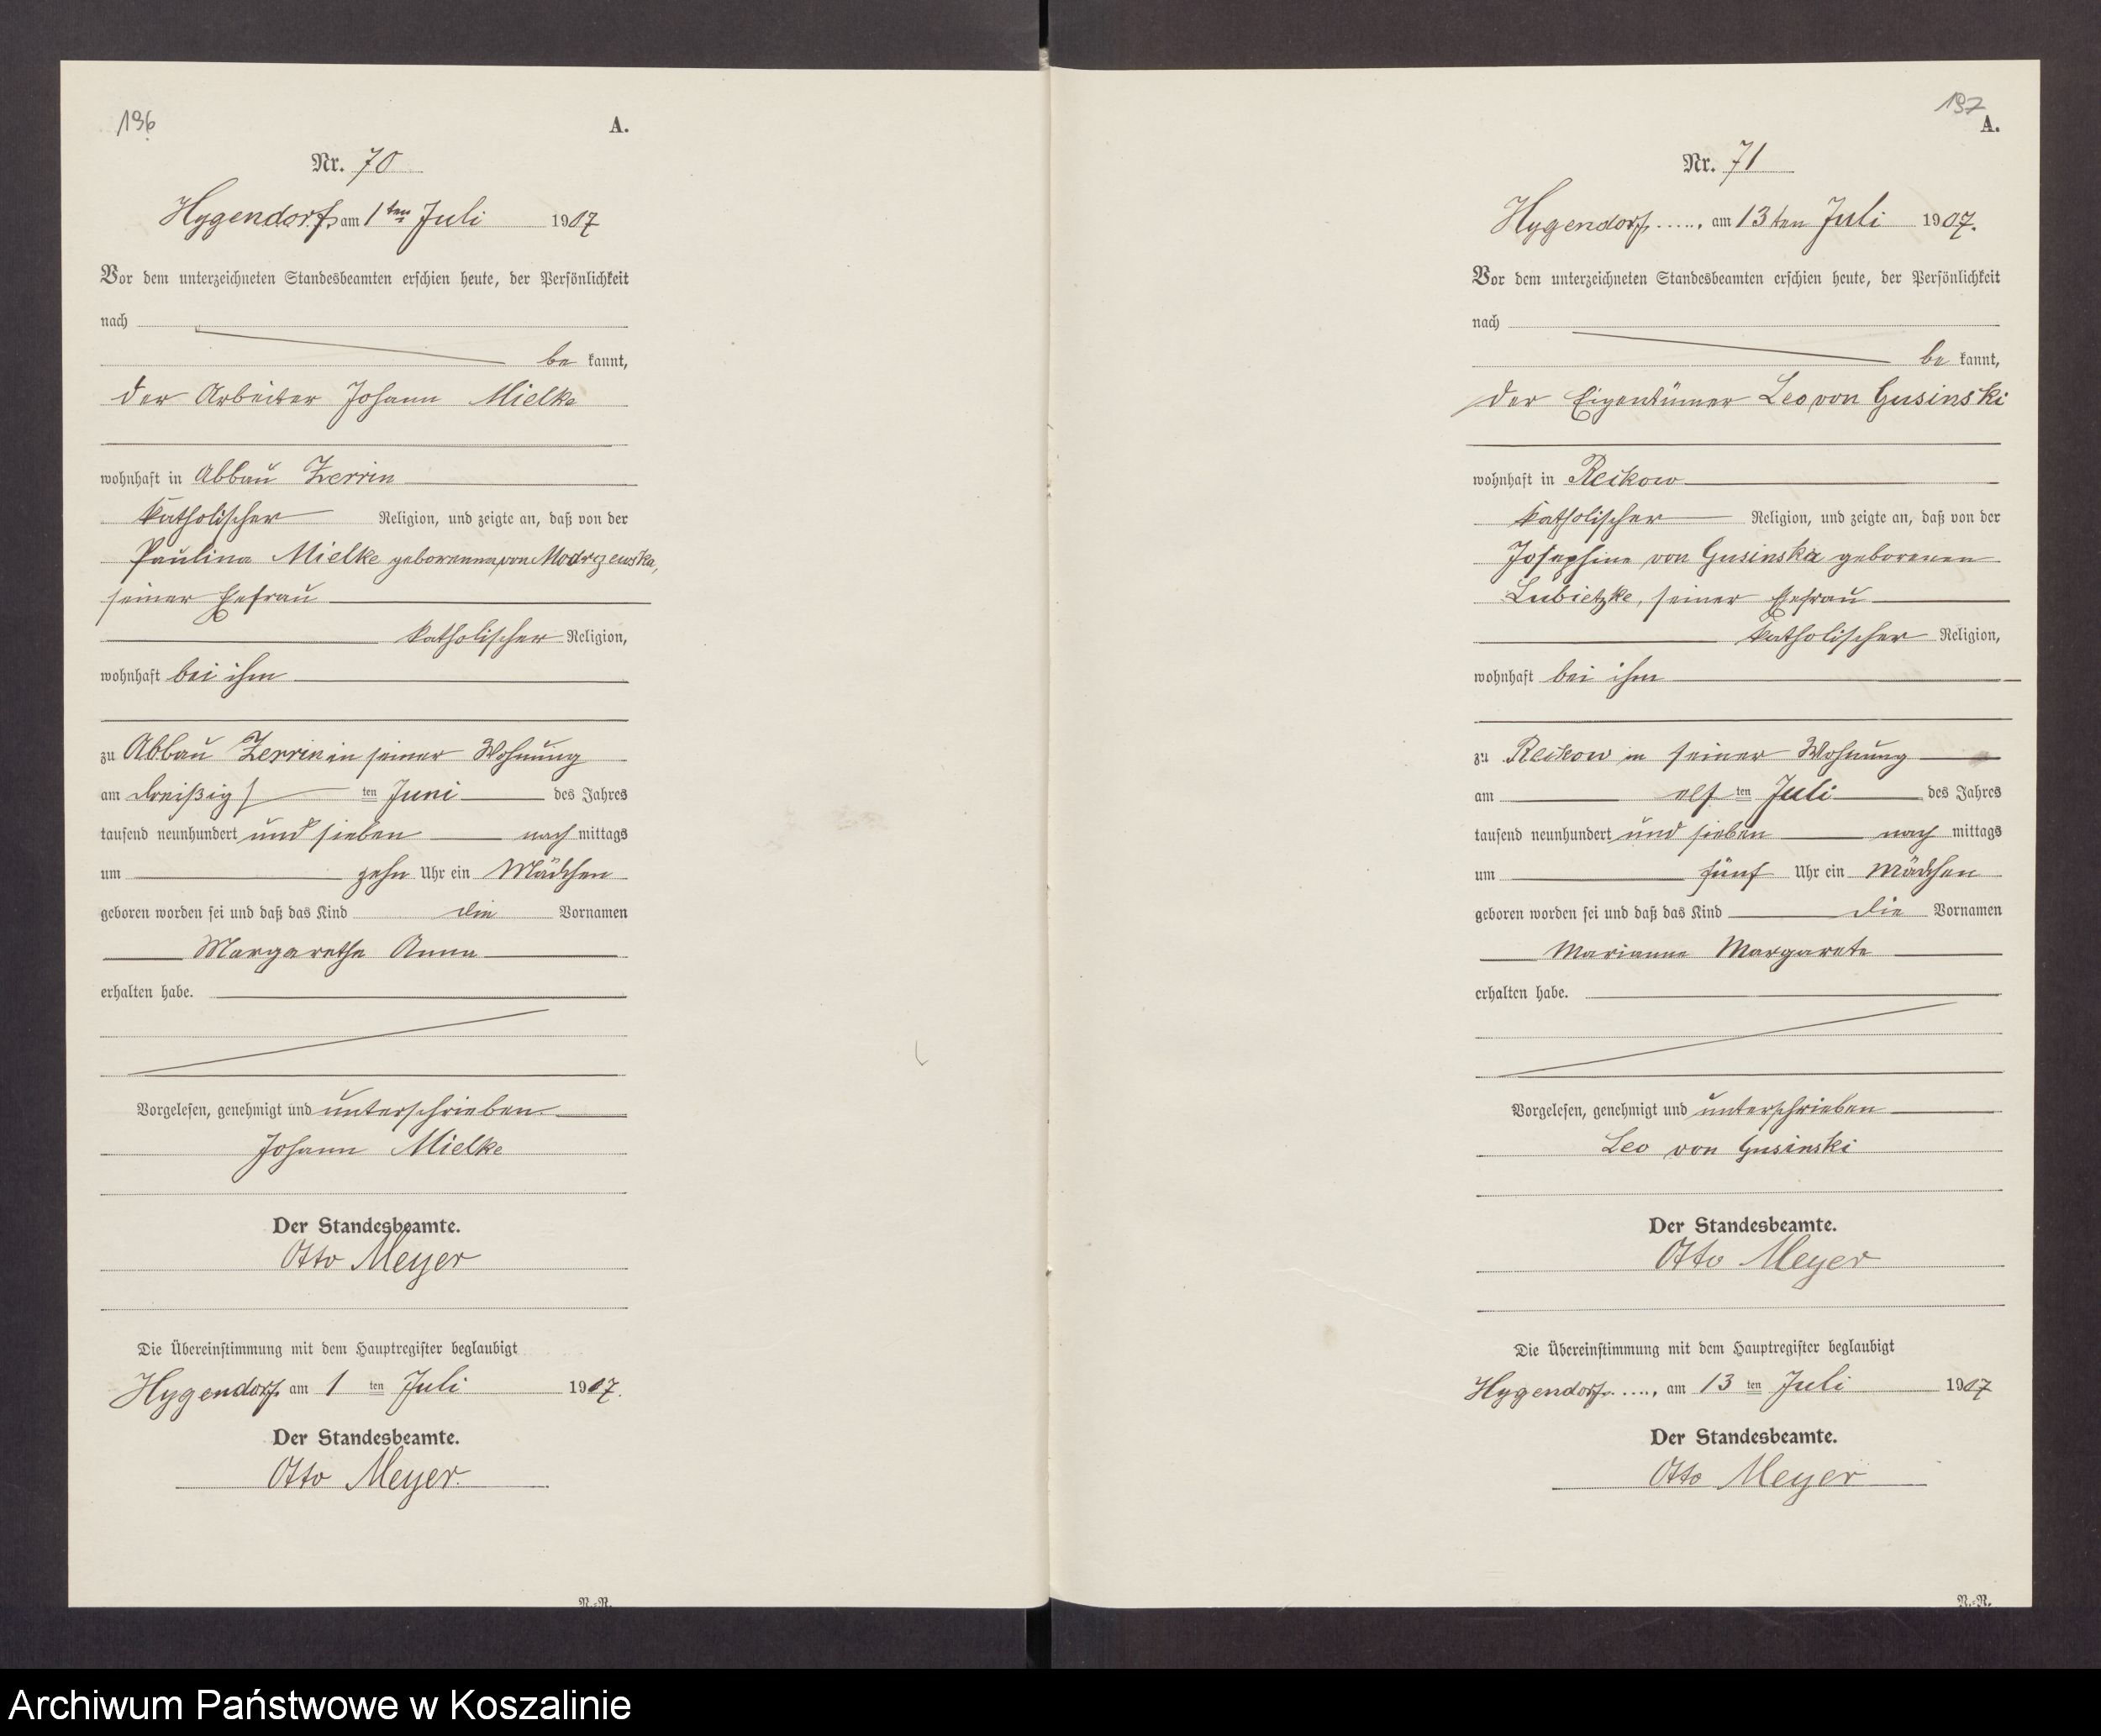 196
A.
Nr. 70
Hygendorf, am 1ten Juli 1907
Vor dem unterzeichneten Standesbeamten erschien heute, der Persönlichkeit
nach
be kannt,
der Arbeiter Johann Mielke
wohnhaft in Abbau Zerrin
katholischer Religion, und zeigte an, daß von der
Paulina Mielke geborenen von Modrzewska,
seiner Ehefrau
katholischer Religion,
wohnhaft bei ihm
zu Abbau Zerrin in seiner Wohnung
am dreißig ten Juni des Jahres
tausend neunhundert und sieben nach mittags
um zehn Uhr ein Mädchen
geboren worden sei und daß das Kind die Vornamen
Margarethe Anna
erhalten habe.
Vorgelesen, genehmigt und unterschrieben
Johann Mielke
Der Standesbeamte.
Otto Meyer
Die Übereinstimmung mit dem Hauptregister beglaubigt
Hygendorf, am 1 ten Juli 1907.
Der Standesbeamte.
Otto Meyer.
N.-R.
197
A.
Nr. 71
Hygendorf, ....., am 13ten Juli 1907.
Vor dem unterzeichneten Standesbeamten erschien heute, der Persönlichkeit
nach
be kannt,
der Eigentümer Leo von Gusinski
wohnhaft in Reikow
katholischer Religion, und zeigte an, daß von der
Josephine von Gusinska geborenen
Lubietzke, seiner Ehefrau
katholischer Religion,
wohnhaft bei ihm
zu Reikow in seiner Wohnung
am elf ten Juli des Jahres
tausend neunhundert und sieben nach mittags
um fünf Uhr ein Mädchen
geboren worden sei und daß das Kind die Vornamen
Marianne Margarete
erhalten habe.
Vorgelesen, genehmigt und unterschrieben
Leo von Gusinski
Der Standesbeamte.
Otto Meyer
Die Übereinstimmung mit dem Hauptregister beglaubigt
Hygendorf, ...., am 13 ten Juli 1907
Der Standesbeamte.
Otto Meyer
N.-R.
Archiwum Państwowe w Koszalinie